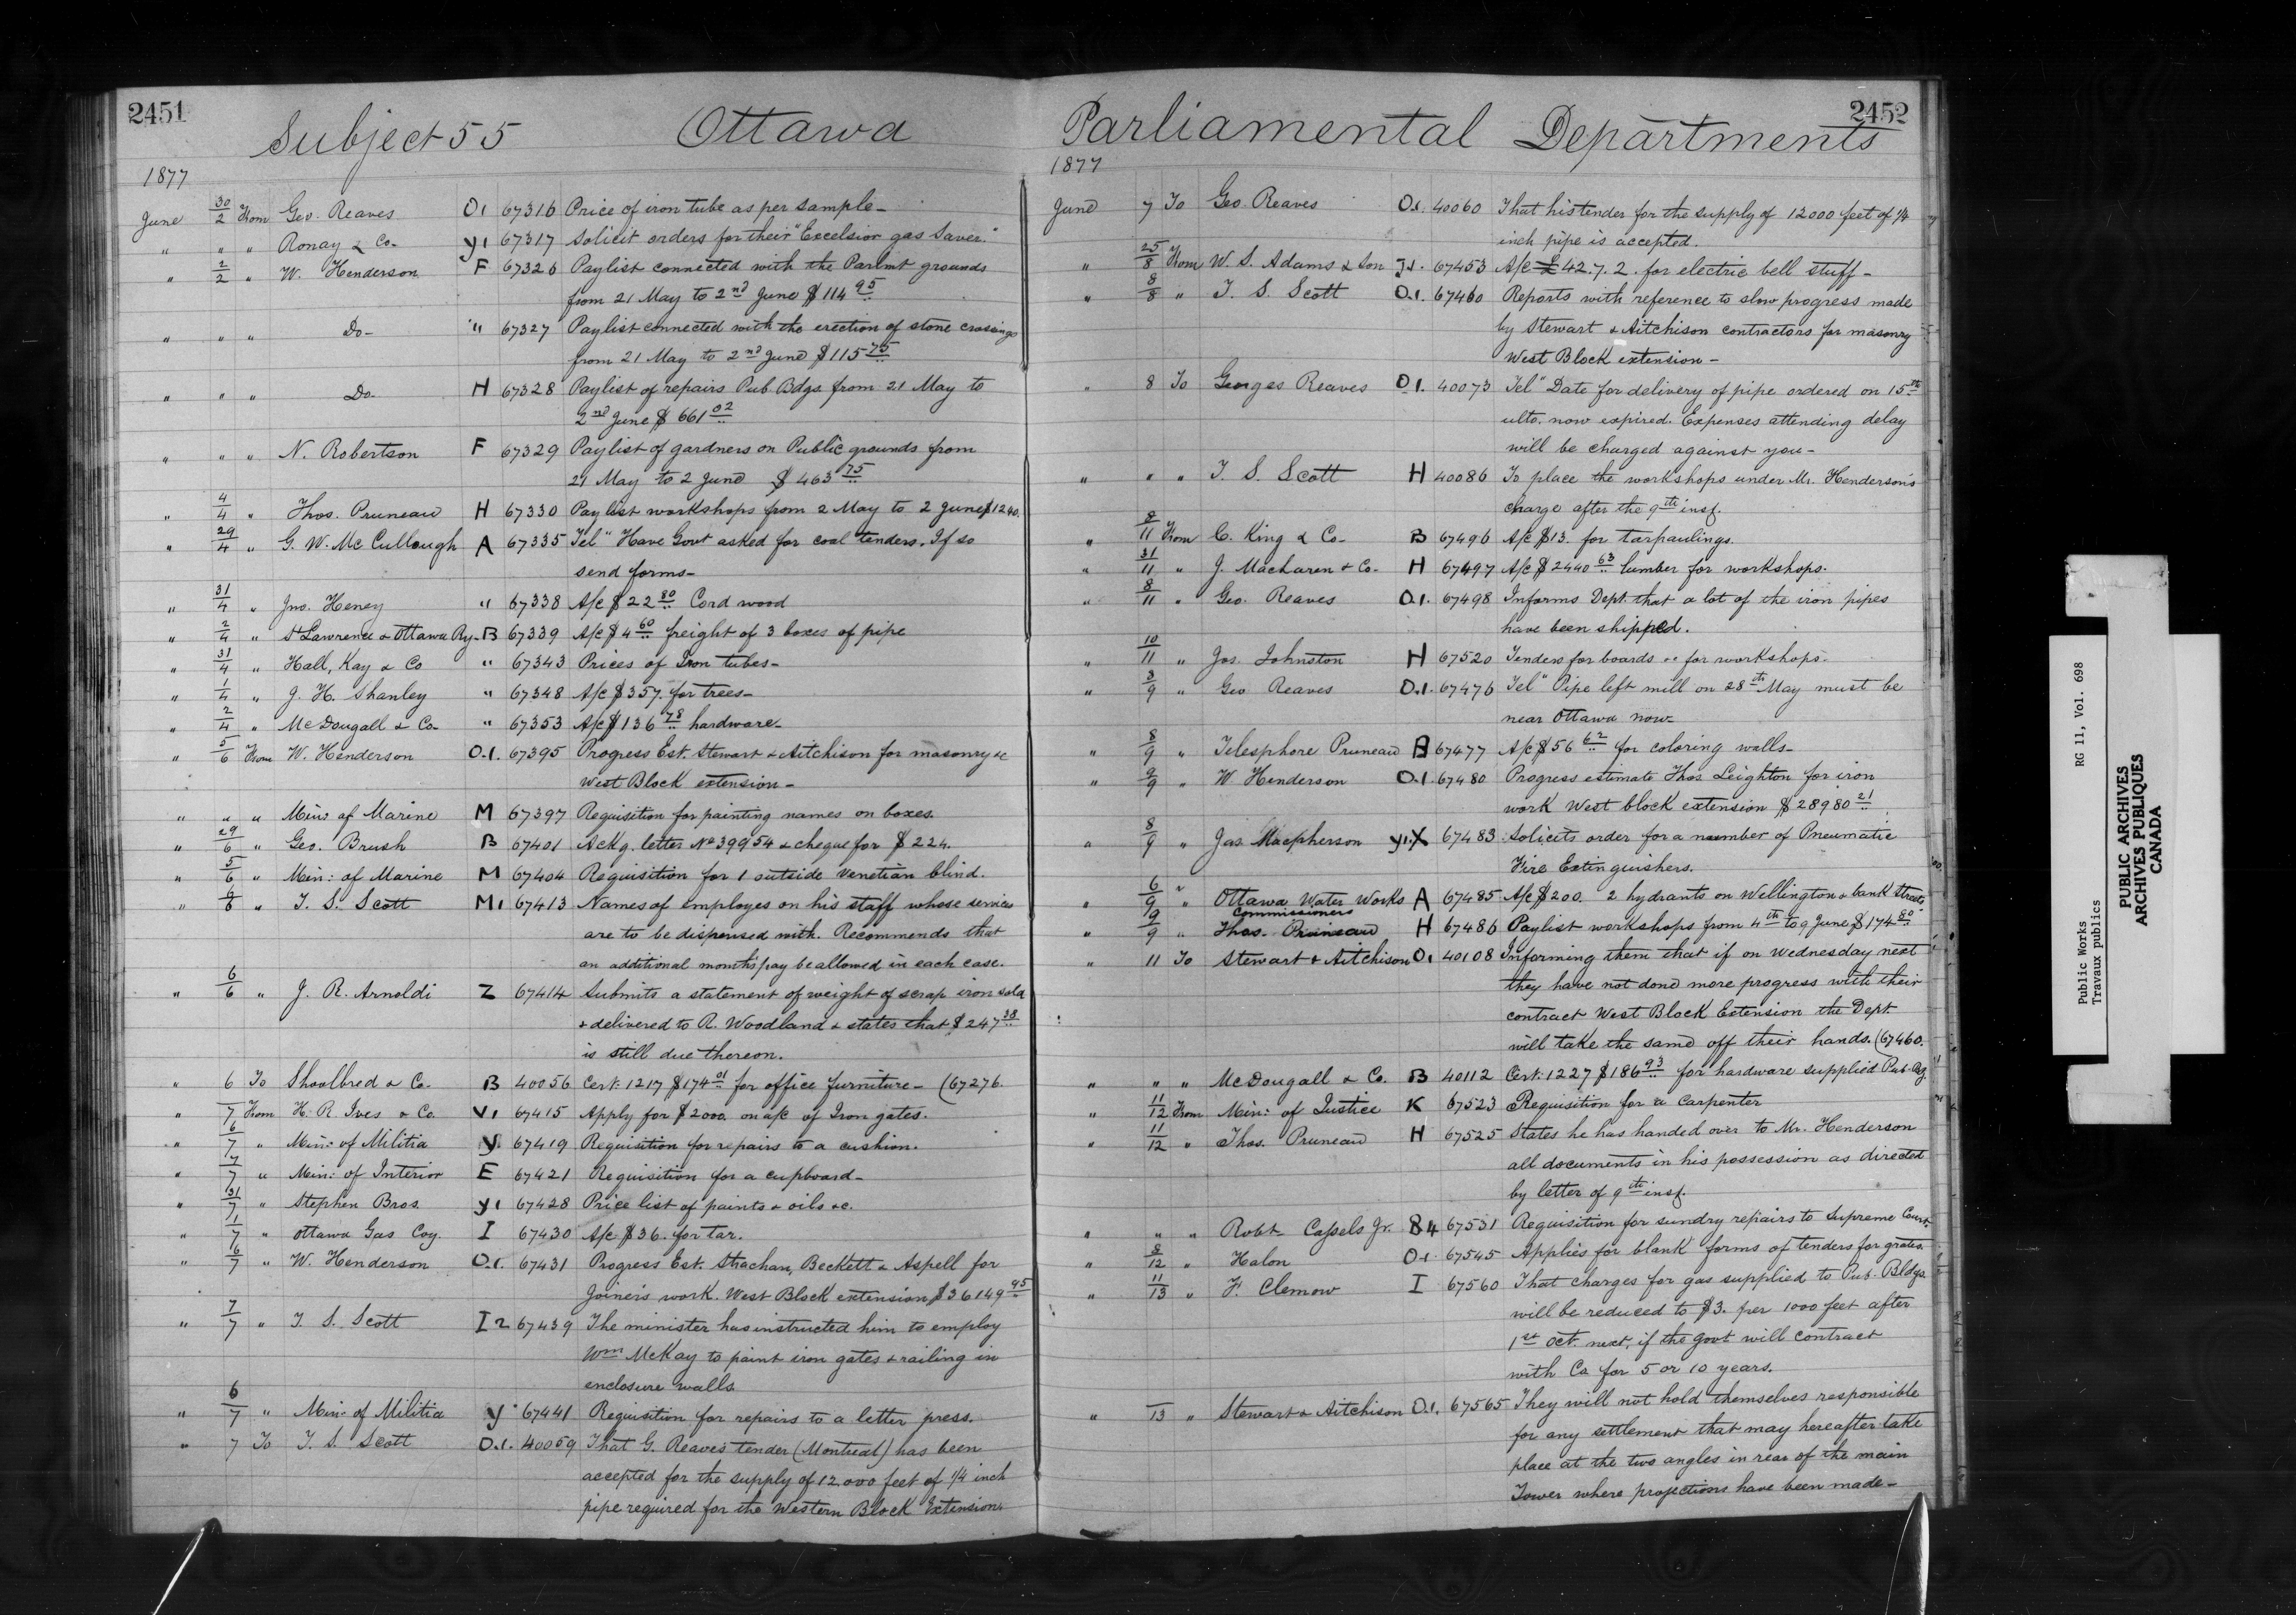 2451
Subject 55 Ottawa
1877
June 30/2 From Geo. Reaves O1 67316 Price of iron tube as per sample-
" " " Ronay & Co- Y1 67317 Solicit orders for their "Excelsior gas Saver."
" 2/2 " W. Henderson F 67326 Paylist connected with the Parlmt grounds
from 21 May to 2nd June $114 95
" " " Do- " 67327 Paylist connected with the erection of stone crossings
from 21 May to 2nd June $115 75
" " " Do- H 67328 Paylist of repairs Pub. Bdgs. from 21 May to
2nd June $661 02
" " " N. Robertson F 67329 Paylist of gardners on Public grounds from
21 May to 2 June $463 75
" 4/4 " Thos. Pruneau H 67330 Paylist workshops from 2 May to 2 June $1240.
" 29/4 " G. W. McCullough A 67335 Tel" Have Govt asked for coal tenders. If so
send forms-
" 31/4 " Jno. Heney " 67338 A/c $22 80 Cord wood
" 2/4 " St Lawrence & Ottawa Ry- B 67339 A/c $4 60 freight of 3 boxes of pipe
" 31/4 " Hall, Kay & Co " 67343 Prices of Iron tubes-
" 1/4 " J. H. Shanley " 67348 A/c $357. for trees-
" 2/4 " McDougall & Co- " 67353 A/c $136 78 hardware-
" 5/6 From W. Henderson O.1. 67395 Progress Est. Stewart & Aitchison for masonry &c
West Block extension-
" " " Min: of Marine M 67397 Requisition for painting names on boxes.
" 29/6 " Geo. Brush B 67401 Ackg. letter No 39954 & cheque for $224.
" 5/6 " Min: of Marine M 67404 Requisition for 1 outside Venetian blind.
" 6/6 " T. S. Scott M1 67413 Names of employes on his staff whose services
are to be dispensed with. Recommends that
an additional months' pay be allowed in each case.
" 6/6 " J. R. Arnoldi Z 67414 Submits a statement of weight of scrap iron sold
& delivered to R. Woodland & states that $247 38
is still due thereon.
" 6 To Shoolbred & Co. B 40056 Cert. 1217 $174 01 for office furniture- (67276
" /7 From H. R. Ives & Co. V1 67415 Apply for $2000. on a/c of Iron gates.
" 6/7 " Min: of Militia Y. 67419 Requisition for repairs to a cushion.
" 7/7 " Min: of Interior E 67421 Requisition for a cupboard-
" 31/7 " Stephen Bros. Y1 67428 Price list of paints & oils &c.
" 1/7 " Ottawa Gas Coy. I 67430 A/c $36. for tar.
" 6/7 " W. Henderson O.1. 67431 Progress Est. Strachan, Beckett & Aspell for
Joiners work. West Block extension $36149 95
" 7/7 " T. S. Scott I2 67439 The minister has instructed him to employ
Wm McKay to paint iron gates & railing in
enclosure walls
" 6/7 " Min: of Militia Y. 67441 Requisition for repairs to a letter press.
" 7 To T. S. Scott O.1. 40059 That G. Reaves tender (Montreal) has been
accepted for the supply of 12,000 feet of 1/4 inch
pipe required for the Western Block Extension.
2452
Parliamental Departments
1877
June 7 To Geo. Reaves O.1. 40060 That his tender for the supply of 12000 feet of 1/4
inch pipe is accepted.
" 25/8 From W. S. Adams & Son J1. 67453 A/c £42.7.2. for electric bell stuff-
" 8/8 " T. S. Scott O.1. 67460 Reports with reference to slow progress made
by Stewart & Aitchison contractors for masonry
West Block extension-
" 8 To Georges Reaves O1. 40073 Tel" Date for delivery of pipe ordered on 15th
ulto. now expired. Expenses attending delay
will be charged against you-
" " " T. S. Scott H 40086 To place the workshops under Mr. Henderson's
charge after the 9th inst.
" 8/11 From C. King & Co- B 67496 A/c $13. for tarpaulings.
" 31/11 " J. Maclaren & Co- H 67497 A/c $2440 63 lumber for workshops.
" 8/11 " Geo. Reaves O.1. 67498 Informs Dept. that a lot of the iron pipes
have been shipped.
" 10/11 " Jos. Johnston H 67520 Tenders for boards &c for workshops.
" 3/9 " Geo Reaves O.1. 67476 Tel" Pipe left mill on 28th May must be
near Ottawa now-
" 8/9 " Telesphore Pruneau B 67477 A/c $56 62 for coloring walls-
" 9/9 " W Henderson O.1. 67480 Progress estimate Thos. Leighton for iron
work West block extension $28980 21
" 8/9 " Jas. Macpherson Y1.X 67483 Solicits order for a number of Pneumatic
Fire Extinguishers.
" 6/9 " Ottawa Water Works A 67485 A/c $200. 2 hydrants on Wellington & bank Streets
Commissioners
" 9/9 " Thos. Pruneau H 67486 Paylist workshops from 4th to 9 June $174 80
" 11 To Stewart & Aitchison O1 40108 Informing them that if on Wednesday next
they have not done more progress with their
contract West Block Extension the Dept.
will take the same off their hands. (67460.
" " " McDougall & Co. B 40112 Cert. 1227 $186 93 for hardware supplied Pub. Bg.
" 11/12 From Min: of Justice K 67523 Requisition for a Carpenter
" 11/12 " Thos. Pruneau H 67525 States he has handed over to Mr. Henderson
all documents in his possession as directed
by letter of 9th inst.
" " " Robt. Cassels Jr. 84 67531 Requisition for sundry repairs to Supreme Court.
" 8/12 " Halon O1. 67545 Applies for blank forms of tenders for grates.
" 11/13 " F. Clemow I 67560 That charges for gas supplied to Pub. Bldgs.
will be reduced to $3. per 1000 feet after
1st Oct. next, if the Govt will contract
with Co for 5 or 10 years.
" /13 " Stewart & Aitchison O.1. 67565 They will not hold themselves responsible
for any settlement that may hereafter take
place at the two angles in rear of the main
Tower where projections have been made-
Public Works RG 11, Vol. 698
Travaux publics
PUBLIC ARCHIVES
ARCHIVES PUBLIQUES
CANADA